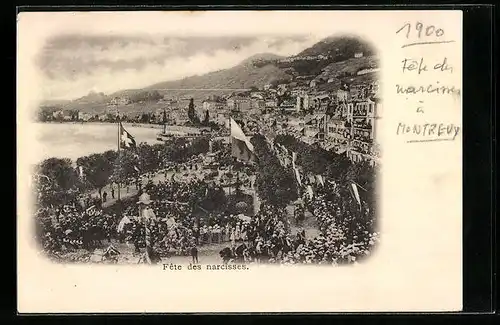 1900
Fête des
narcisses
à
MONTREUX
Fête des narcisses.